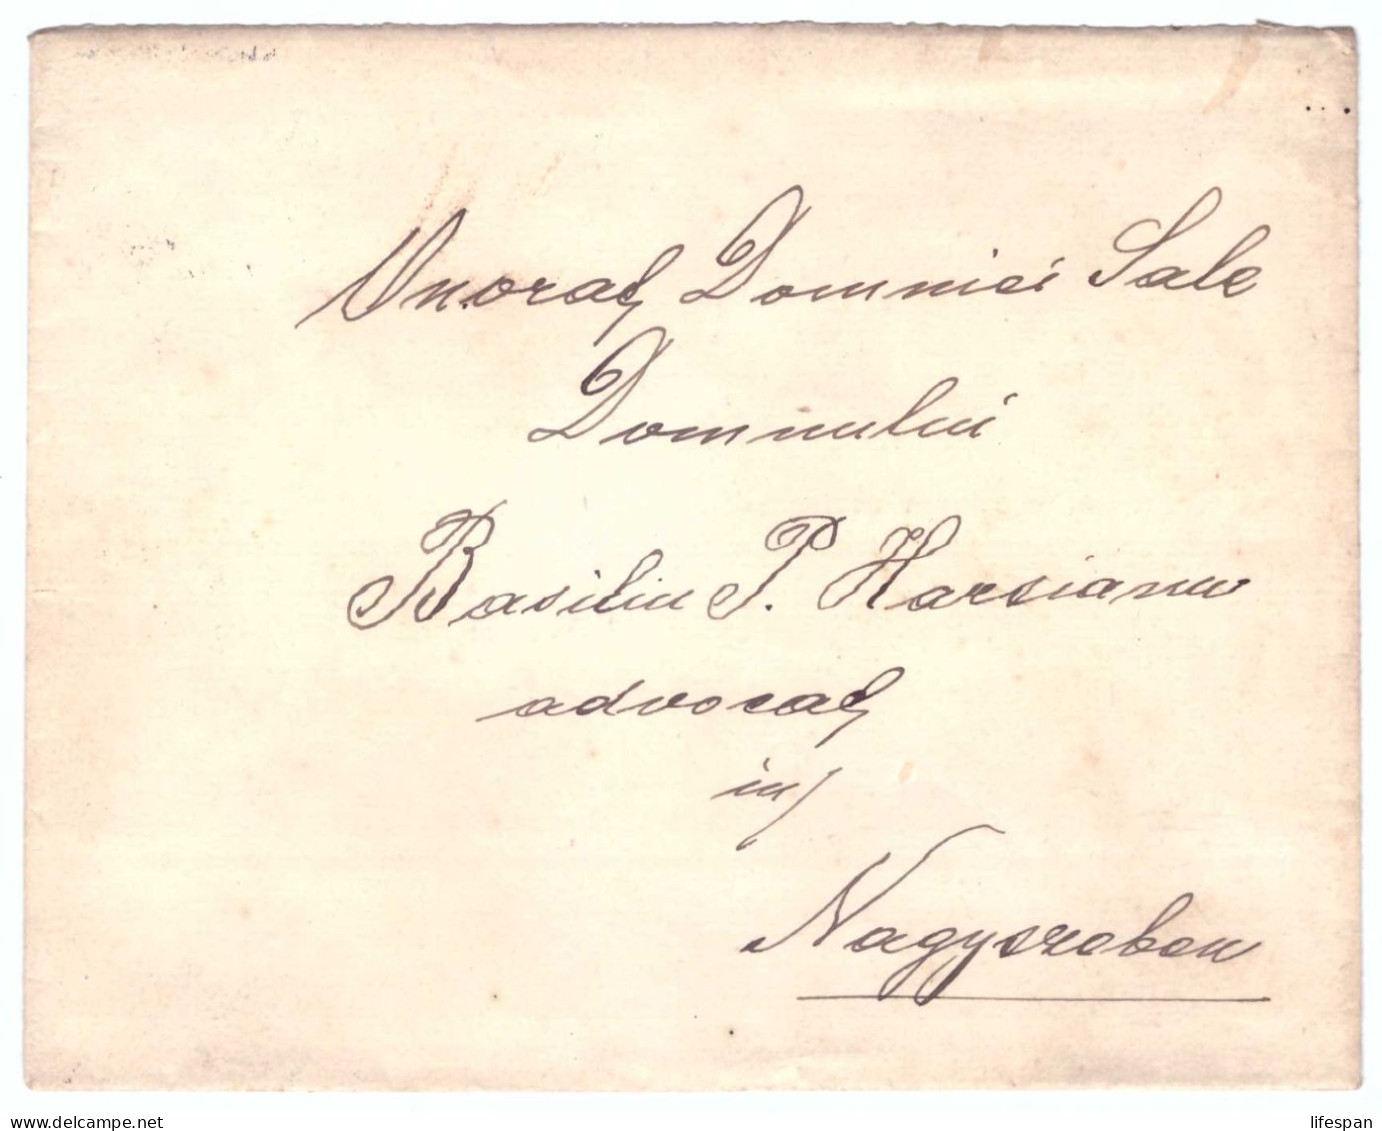 Onorat Domniei Sale
Domnului
Basiliu P. Harsianu
advocat
in
Nagyszeben
delcampe.net
lifespan